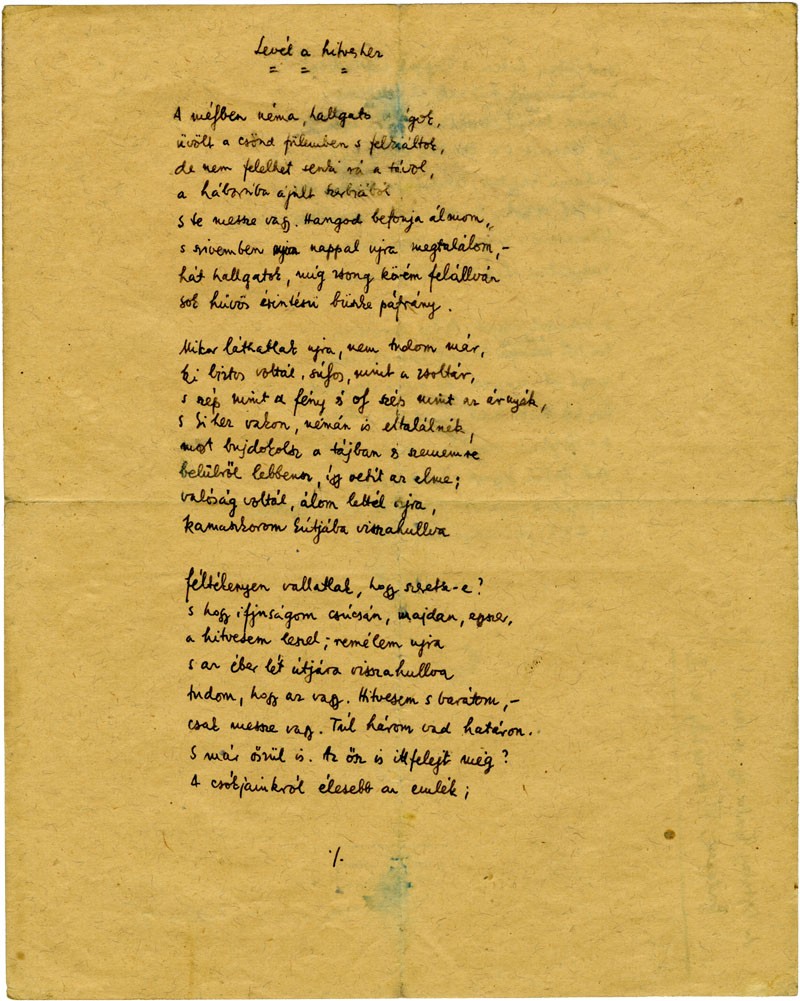 Levél a hitveshez
A mélyben néma, hallgató
üvölt a csönd fülemben s felkiáltok,
de nem felelhet senki rá a távol,
a háborúba ájult Szerbiából
s te messze vagy. Hangod befonja álmom,
s szivemben nappal ujra megtalálom, –
hát hallgatok, míg zsong körém felállván
sok hűvös érintésü büszke páfrány.
Mikor láthatlak ujra, nem tudom már,
ki biztos voltál, súlyos, mint a zsoltár,
s szép mint a fény s oly szép mint az árnyék,
s kihez vakon, némán is eltalálnék,
most bujdokolsz a tájban s szememre
belülről lebbensz, így vetít az elme;
valóság voltál, álom lettél ujra,
kamaszkorom kútjába visszahullva
féltékenyen vallatlak, hogy szeretsz-e?
s hogy ifjuságom csúcsán, majdan, egyszer,
a hitvesem leszel; remélem ujra
s az éber lét útjára visszahullva
tudom, hogy az vagy. Hitvesem s barátom, –
csak messze vagy. Túl három vad határon.
S már őszül is. Az ősz is ittfelejt még?
A csókjainkról élesebb az emlék;
./.